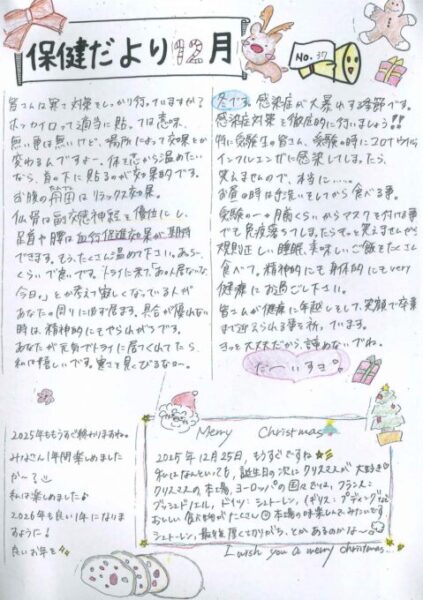 保健だより12月
NO.37
皆さんは寒さ対策をしっかり行っていますか？
ホッカイロって適当に貼っては意味
無い事は無いけど、場所によって効果とか
変わるんですよー。体を芯から温めたい
なら、首の下に貼るのが効果的です。
お腹の丹田はリラックス効果。
仙骨は副交感神経を優位にし、
足首や腰は血行促進効果が期待
できます。もうたくさん温めて下さい。
くらいで良いです。トライに来て、あの人居ないな、
今日。とか考えて寂しくなっている人が
あなたの周りには必ず居ます。具合が優れない
時は、精神的にもやられがちです。
あなたが元気でトライに居てくれてたら、
私は嬉しいです。
冬です。感染症が大暴れする季節です。
感染症対策を徹底的に行いましょう!!
特に受験生の皆さん、受験の時にコロナウイルス
インフルエンザに感染してしまったら、
笑えませんので、本当に……。
お昼の時は手洗いをしてから食べる事。
受験の一ヶ月前くらいからマスクを付ける事
でも免疫落ちつしまったらもっと笑えませんから
規則正しい睡眠、美味しいご飯をたくさん
食べて。精神的にも身体的にもvery
健康にお過ごし下さい。
皆さんが健康に年越しをして、笑顔で卒業
まで迎えられる事を祈っています。
ヨッと大丈夫だから、諦めないでね。
だーいすき♡。
2025年ももうすぐ終わりますね。
みなさん1年間楽しめました
か〜？
私は楽しめました♪
2026年も良い1年になりま
すように！
良いお年を
Merry Christmas
2025年12月25日、もうすぐですね
私はなんといっても、誕生日の次にクリスマスが大好き
クリスマスの本場、ヨーロッパの国々では、フランス：
ブッシュドノエル、ドイツ：シュトーレン、イギリス：プディングなど
おいしい食べ物がたくさん 本場の味楽しんでみたいです
シュトーレン、最後厚く切りがち、とかあるのかな〜
I wish you a merry christmas...